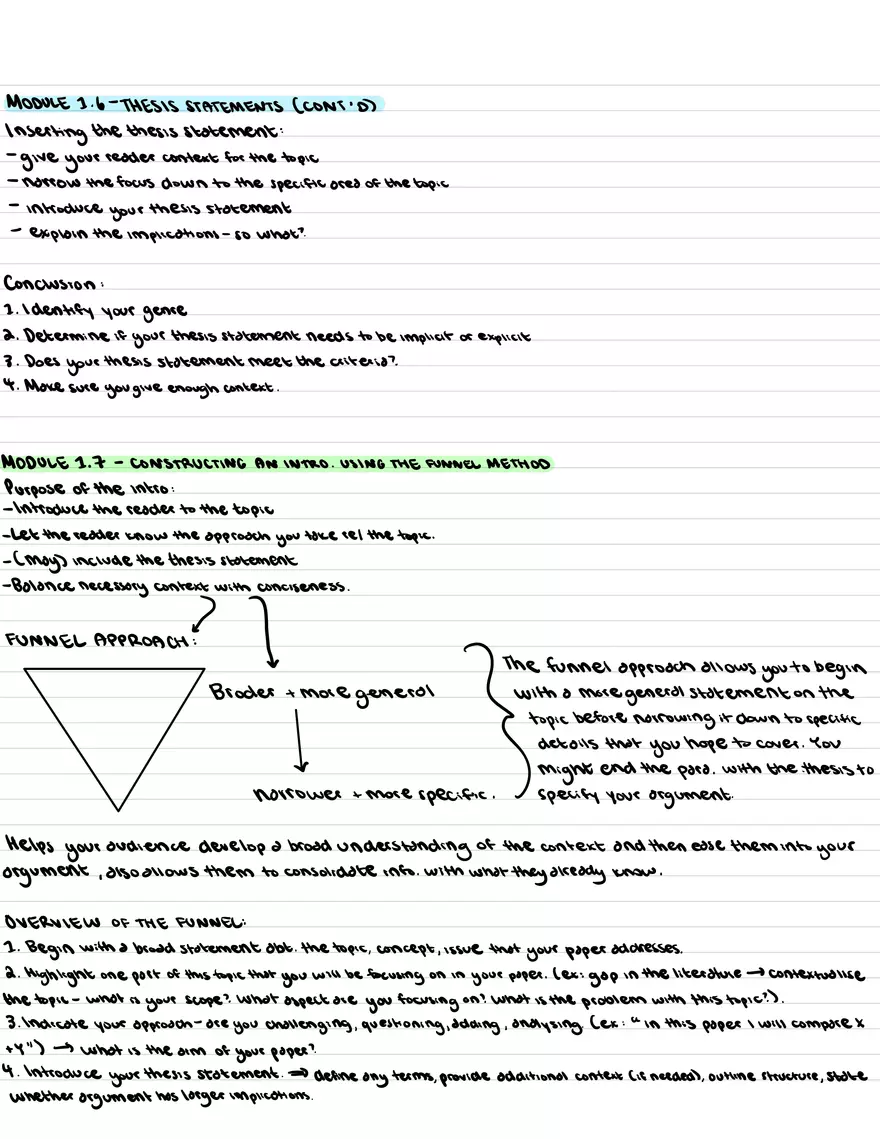 MODULE 1.6 - THESIS STATEMENTS (CONT'D)
Inserting the thesis statement:
- give your reader context for the topic
- narrow the focus down to the specific area of the topic
- introduce your thesis statement
- explain the implications - so what?
Conclusion:
1. Identify your genre
2. Determine if your thesis statement needs to be implicit or explicit
3. Does your thesis statement meet the criteria?
4. Make sure you give enough context.
MODULE 1.7 - CONSTRUCTING AN INTRO. USING THE FUNNEL METHOD
Purpose of the intro:
-Introduce the reader to the topic
-Let the reader know the approach you take rel the topic.
-(may) include the thesis statement
-Balance necessary context with conciseness.
FUNNEL APPROACH:
Broder + more general
narrower + more specific.
The funnel approach allows you to begin
with a more general statement on the
topic before narrowing it down to specific
details that you hope to cover. You
might end the para. with the thesis to
specify your argument.
Helps your audience develop a broad understanding of the context and then ease them into your
argument, also allows them to consolidate info. with what they already know.
OVERVIEW OF THE FUNNEL:
1. Begin with a broad statement abt. the topic, concept, issue that your paper addresses.
2. Highlight one part of this topic that you will be focusing on in your paper. (ex: gap in the literature → contextualise
the topic - what is your scope? What aspect are you focusing on? What is the problem with this topic?).
3. Indicate your approach - are you challenging, questioning, adding, analysing. (ex: "in this paper I will compare x
+ y") → what is the aim of your paper?
4. Introduce your thesis statement. ⇒ define any terms, provide additional context (if needed), outline structure, state
whether argument has larger implications.